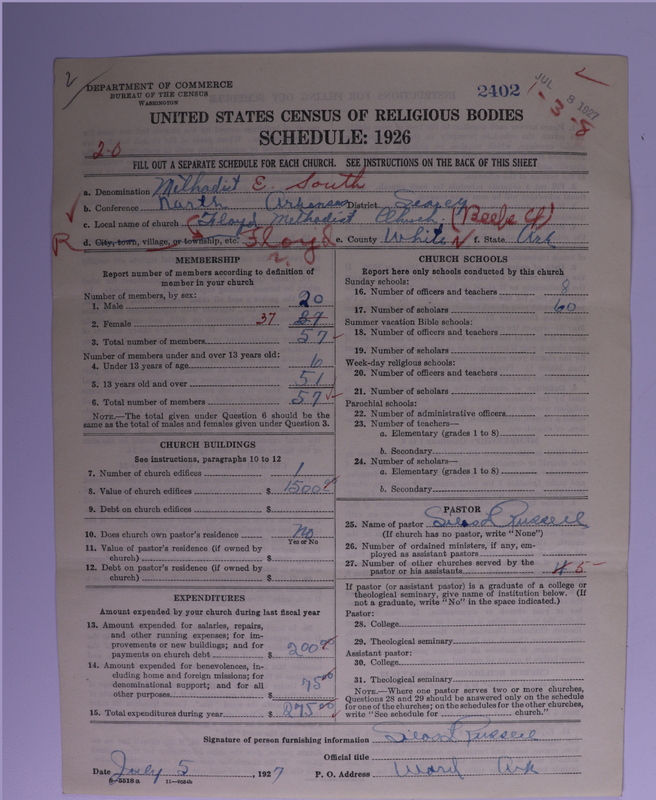 2
DEPARTMENT OF COMMERCE
BUREAU OF THE CENSUS
WASHINGTON
2402
JUL 8 1927
1-3-8
UNITED STATES CENSUS OF RELIGIOUS BODIES
SCHEDULE: 1926
2-0
FILL OUT A SEPARATE SCHEDULE FOR EACH CHURCH. SEE INSTRUCTIONS ON THE BACK OF THIS SHEET
a. Denomination Methodist E. South
b. Conference North Arkansas District Searcy
c. Local name of church (Floyd Methodist Church (Beebe Ct)
R d. City, town, village, or township, etc. Floyd e. County White f. State Ark
MEMBERSHIP
Report number of members according to definition of
member in your church
Number of members, by sex:
1. Male 20
2. Female 37 37
3. Total number of members 57
Number of members under and over 13 years old:
4. Under 13 years of age 6
5. 13 years old and over 51
6. Total number of members 57
NOTE.—The total given under Question 6 should be the
same as the total of males and females given under Question 3.
CHURCH BUILDINGS
See instructions, paragraphs 10 to 12
7. Number of church edifices 1
8. Value of church edifices $ 1500
9. Debt on church edifices $
10. Does church own pastor's residence No
Yes or No
11. Value of pastor's residence (if owned by
church) $
12. Debt on pastor's residence (if owned by
church) $
EXPENDITURES
Amount expended by your church during last fiscal year
13. Amount expended for salaries, repairs,
and other running expenses; for im-
provements or new buildings; and for
payments on church debt $ 200
14. Amount expended for benevolences, in-
cluding home and foreign missions; for
denominational support; and for all
other purposes $ 75 00
15. Total expenditures during year $ 275 00
CHURCH SCHOOLS
Report here only schools conducted by this church
Sunday schools:
16. Number of officers and teachers 8
17. Number of scholars 60
Summer vacation Bible schools:
18. Number of officers and teachers
19. Number of scholars
Week-day religious schools:
20. Number of officers and teachers
21. Number of scholars
Parochial schools:
22. Number of administrative officers
23. Number of teachers—
a. Elementary (grades 1 to 8)
b. Secondary
24. Number of scholars—
a. Elementary (grades 1 to 8)
b. Secondary
PASTOR
25. Name of pastor Silas L Russell
(If church has no pastor, write "None")
26. Number of ordained ministers, if any, em-
ployed as assistant pastors
27. Number of other churches served by the
pastor or his assistants 5
If pastor (or assistant pastor) is a graduate of a college or
theological seminary, give name of institution below. (If
not a graduate, write "No" in the space indicated.)
Pastor:
28. College
29. Theological seminary
Assistant pastor:
30. College
31. Theological seminary
NOTE.—Where one pastor serves two or more churches,
Questions 28 and 29 should be answered only on the schedule
for one of the churches; on the schedules for the other churches,
write "See schedule for church."
Signature of person furnishing information Silas L Russell
Official title
Date July 5, 1927 P. O. Address Ward Ark